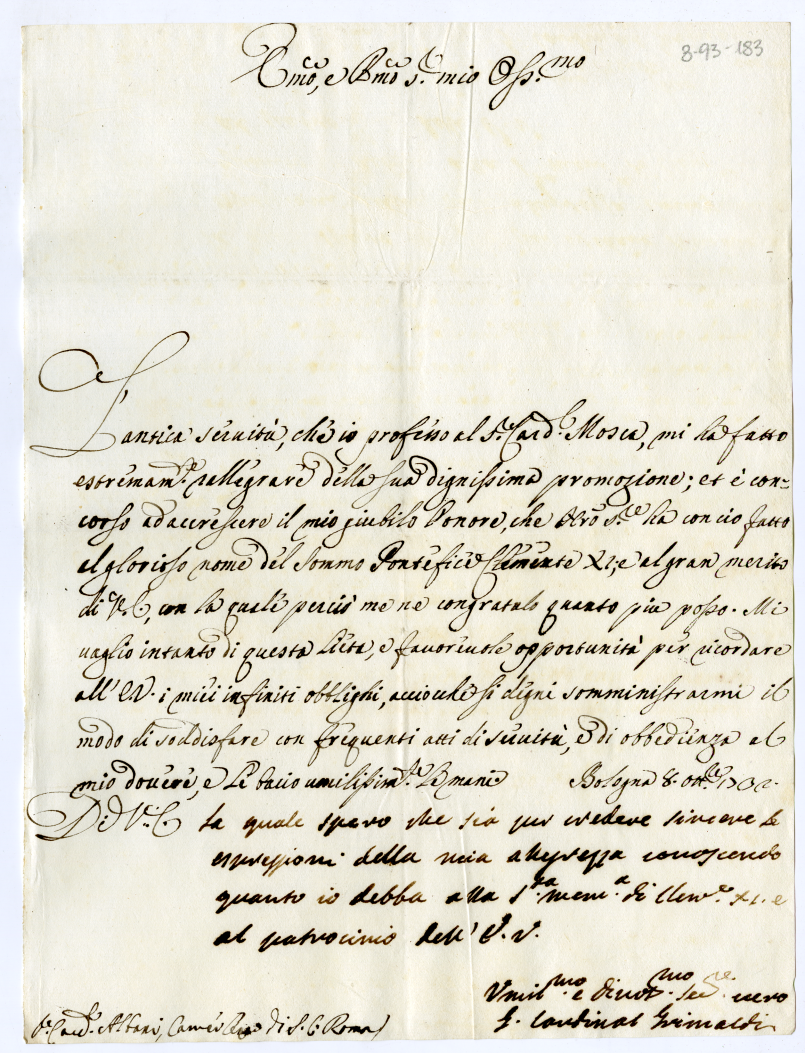 8-93-183
Em̃o, e Rm̃o Sr. mio Oss.mo
L'antica seruitù, che io professo al Sr. Card.l Mosca, mi ha fatto
estremam.te rallegrare della sua dignissima promozione; et è con-
corso ad accrescere il mio giubilo l'onore, che Nro S.re ha con ciò fatto
al glorioso nome del Sommo Pontefice Clemente XI, e al gran merito
di V.E., con la quale perciò me ne congratulo quanto più posso. Mi
vaglio intanto di questa lieta, e fauoreuole opportunità per ricordare
all'E.V. i miei infiniti obblighi, acciocchè si degni somministrarmi il
modo di soddisfare con frequenti atti di seruitù, e di obbedienza al
mio douere, e Le bacio umilissim.te le mani Bologna 8. ott.re
Di V.E. la quale spero che sia per credere sincere le
espressioni della mia allegrezza conoscendo
quanto io debba alla S.ta mem.a di Clem.e XI. e
al patrocinio dell'E.V.
Vmil.mo e diuot.mo ser.re uero
G. Cardinal Grimaldi
Sr. Card.l Albani, Camerlingo di S.C. Roma